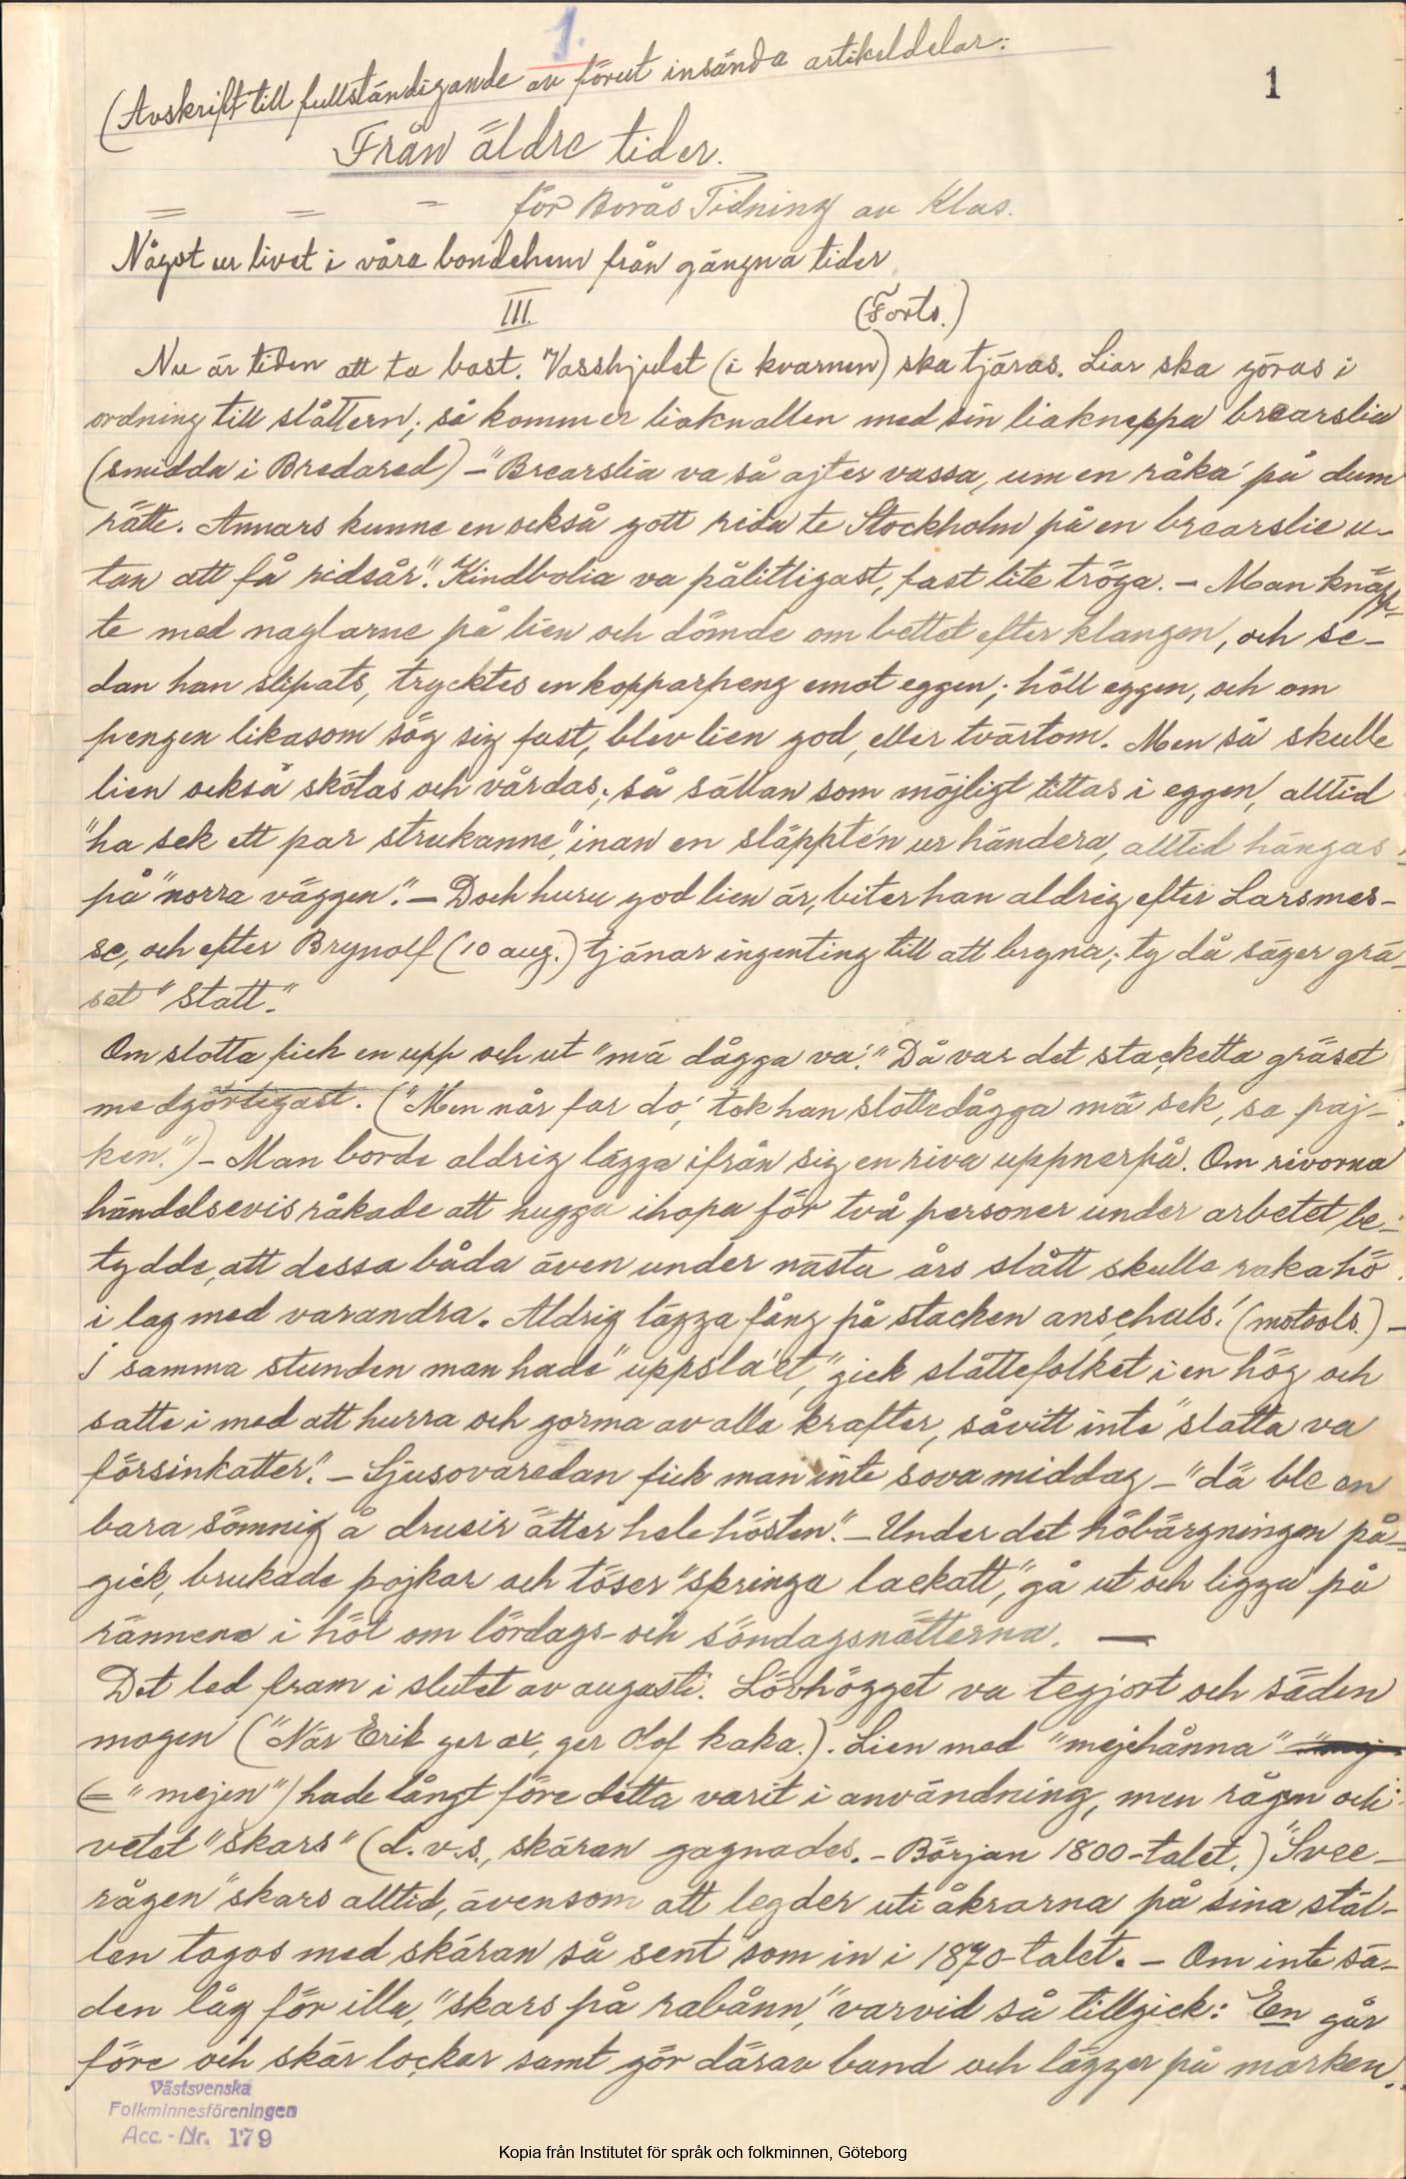 1.
1
(Avskrift till fullständigande av förut insända artikeldelar:
Från äldre tider.
för Borås Tidning av Klas.
Något ur livet i våra bondehem från gångna tider
III. (Forts.)
Nu är tiden att ta bast. Vasshjulet (i kvarnen) ska tjäras. Liar ska göras i
ordning till slåttern; så kommer liaknallen med sin liakneppa brearslia
(smidda i Bredared) – "Brearslia va så ajter vassa, um en råka' på dum
rätte. Annars kunne en också gott rida te Stockholm på en brearslie u-
tan att få ridsår". Kindbolia va pålitligast, fast lite tröga. – Man knäpp-
te med naglarne på lien och dömde om bettet efter klangen, och se-
dan han slipats, trycktes en kopparpeng emot eggen; höll eggen, och om
pengen likasom sög sig fast, blev lien god, eller tvärtom. Men så skulle
lien också skötas och vårdas; så sällan som möjligt tittas i eggen, alltid
"ha sek ett par strukanne", inan en släppte'n ur händera, alltid hängas
på "norra väggen". – Doch huru god lien är, biter han aldrig efter Larsmes-
se, och efter Brynolf (10 aug.) tjänar ingenting till att bryna; ty då säger grä-
set "statt".
Om slotta fick en upp och ut "mä dågga va'." Då var det stacketta gräset
medgörligast. ("Men når far do', tok han slottedågga mä sek, sa paj-
ken.") – Man borde aldrig lägga ifrån sig en riva uppnerpå. Om rivorna
händelsevis råkade att hugga ihopa för två personer under arbetet be-
tydde, att dessa båda även under nästa års slått skulle raka hö
i lag med varandra. Aldrig lägga fång på stacken anschuls! (motsols.) –
I samma stunden man hade "uppslaet", gick slåttefolket i en hög och
satte i med att hurra och gorma av alla krafter, såvitt inte "slatta va
försinkatter". – Ljusovaredan fick man inte sova middag – "dä ble en
bara sömnig å drusir ätter hele hösten". – Under det höbärgningen på-
gick, brukade pojkar och töser "springa lackatt", gå ut och ligga på
rännena i höt om lördags- och söndagsnätterna. —
Det led fram i slutet av augusti. Lövhögget va tegjort och säden
mogen ("När Erik ger ax, ger Olof kaka.). Lien med "mejehånna"
(= "mejen") hade långt före detta varit i användning, men rågen och
vetet "skars" (d.v.s., skäran gagnades. – Början 1800-talet.) "Svee-
rågen" skars alltid, ävensom att legder uti åkrarna på sina stäl-
len togos med skäran så sent som in i 1870-talet. – Om inte sä-
den låg för illa, "skars på rabånn", varvid så tillgick: En går
före och skär locker samt gör därav band och lägger på marken.
Västsvenska
Folkminnesföreningen
Acc.-Nr. 179
Kopia från Institutet för språk och folkminnen, Göteborg